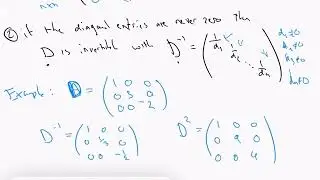 ② if the diagonal entries are never zero then
D is invertible with D⁻¹ = (1/d₁ 1/d₂ ... 1/dₙ) d₁≠0
d₂≠0
d₃≠0
dₙ≠0
Example: D = (1 0 0
0 3 0
0 0 -2)
D⁻¹ = (1 0 0
0 1/3 0
0 0 -1/2)
D² = (1 0 0
0 9 0
0 0 4)